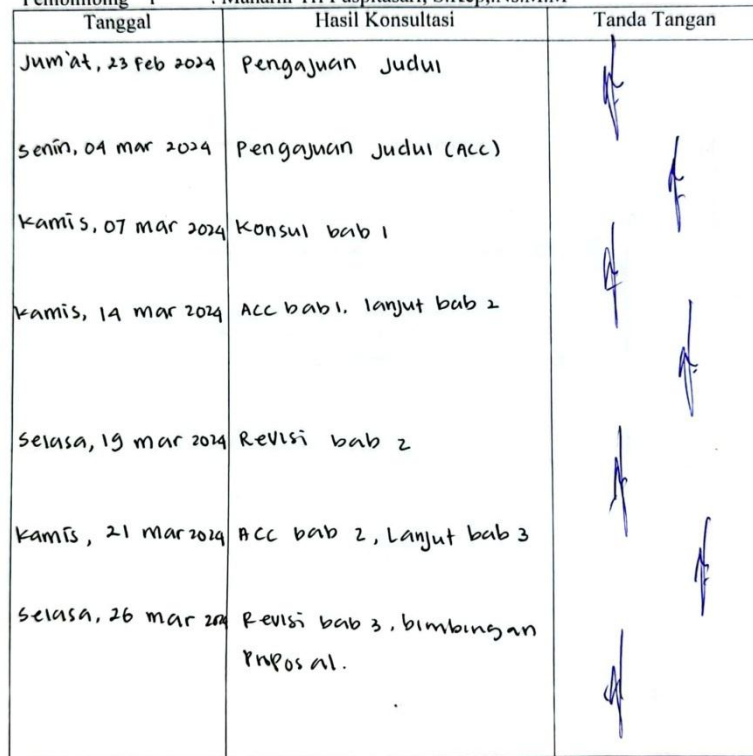 Tanggal Hasil Konsultasi Tanda Tangan
Jum'at, 23 Feb 2024 Pengajuan Judul
Senin, 04 mar 2024 Pengajuan Judul (ACC)
Kamis, 07 mar 2024 Konsul bab 1
Kamis, 14 mar 2024 ACC bab 1. lanjut bab 2
Selasa, 19 mar 2024 Revisi bab 2
Kamis, 21 mar 2024 ACC bab 2, Lanjut bab 3
Selasa, 26 mar Revisi bab 3. bimbingan
Proposal.